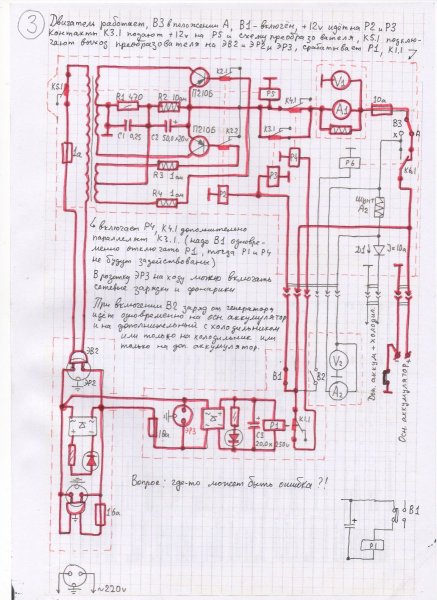 3
Двигатель работает, В3 в положении А, В1 - включён, +12v идёт на Р2 и Р3
контакты К3.1 подают +12v на Р5 и схему преобразователя, К5.1 подклю-
чают выход преобразователя на ЭВ2 и ЭР2 и ЭР3, срабатывает Р1, К1.1
К5.1
R1 470
R2 10ом
П210Б
К2.1
Р5
К4.1
V1
А1
10а
C1 0,25
C2 50,0×20v
П210Б
К2.2
К3.1
В3
х
А
1а
R3 1ом
R4 1ом
Р2
Р3
Р4
Р6
К6.1
Шунт
А2
включает Р4, К4.1 дополнительно
параллелит К3.1. (надо В1 одновре-
менно отключать Р1, тогда Р1 и Р4
не будут задействованы)
В розетку ЭР3 на ходу можно включать
сетевые зарядки и фонарики
При включении В2 заряд от генератора
идёт одновременно на осн. аккумулятор
и на дополнительный с холодильником
или только на холодильник или
только на доп. аккумулятор.
Д1
J×10а
Доп. аккум + холодил.
Осн. аккумулятор +
ЭВ2
ЭР2
В1
В2
V2
А2
10а
ЭР3
C3
20,0×250v
Р1
К1.1
16а
Вопрос: где-то может быть ошибка ?!
В1
Р1
~220v